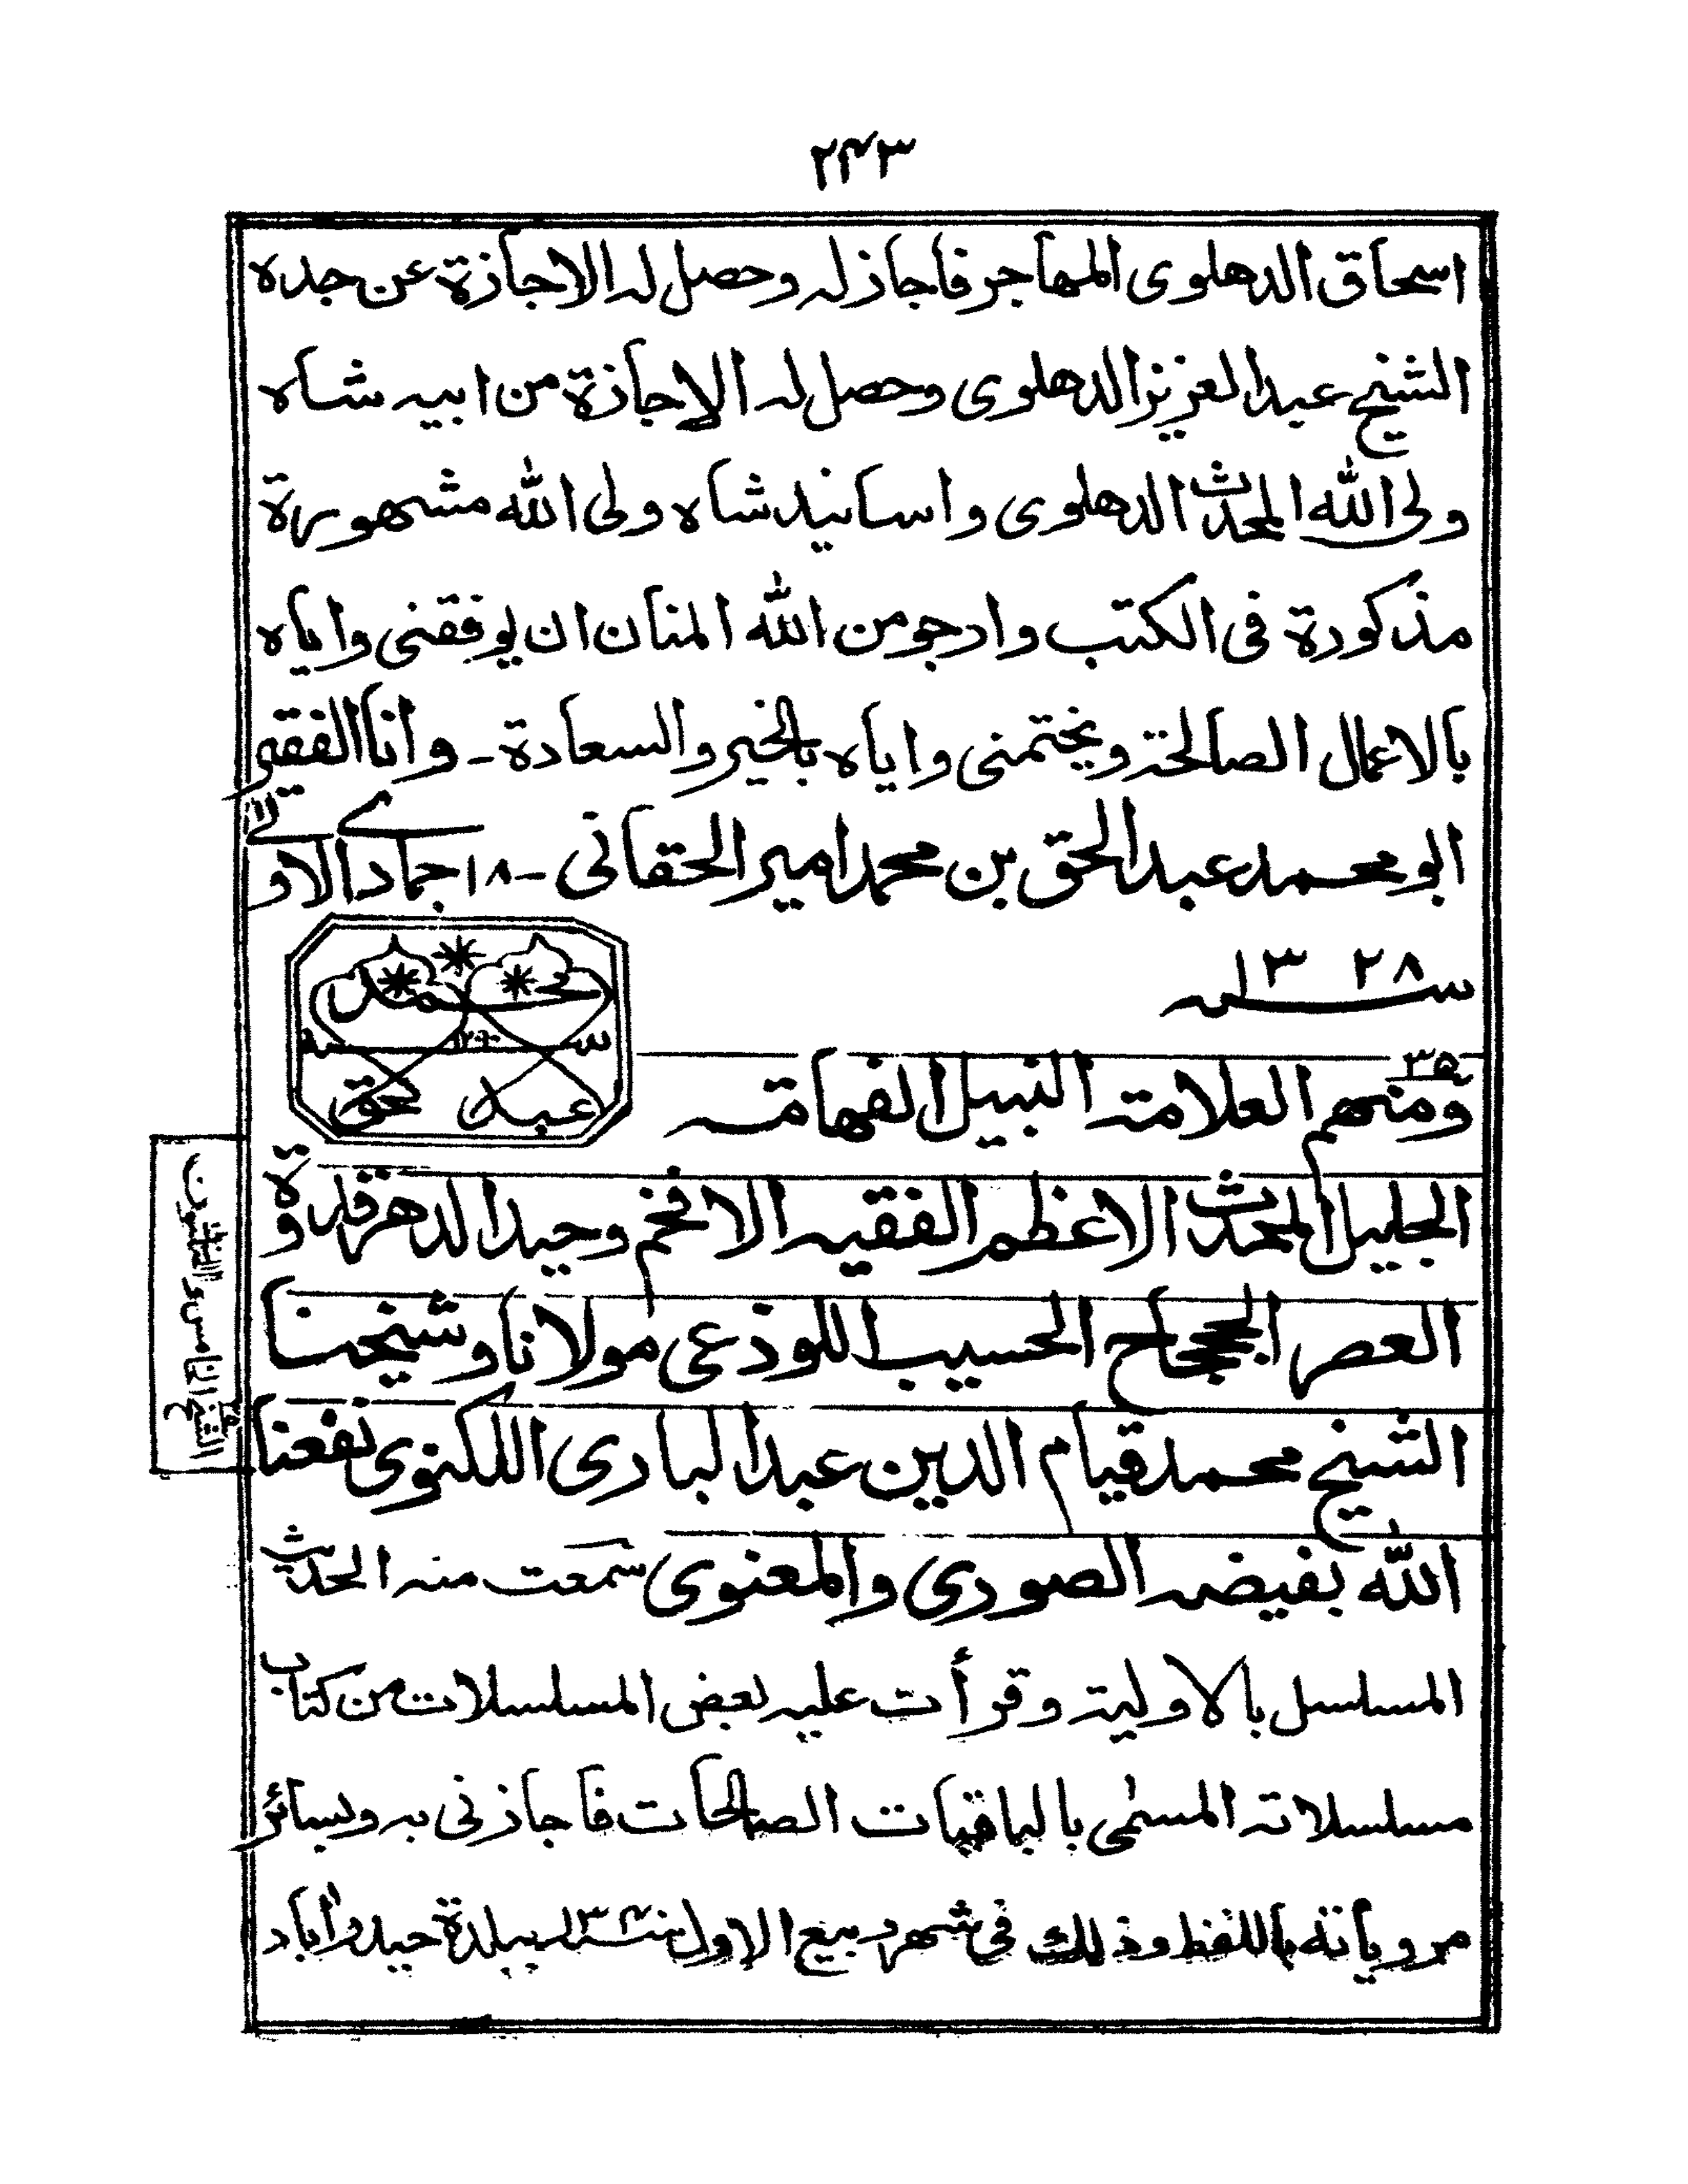 ٢٤٣
اسحاق الدهلوى المهاجر فاجاز له وحصل له الاجازة عن جده
الشيخ عبد العزيز الدهلوى وحصل له الاجازة من ابيه شاه
ولى الله المحدث الدهلوى واسانيد شاه ولى الله مشهورة
مذكورة فى الكتب وارجو من الله المنان ان يوفقنى واياه
بالاعمال الصالحة ويختمنى واياه بالخير والسعادة - وانا الفقير
ابو محمد عبد الحق بن محمد امير الحقانى - ١٨ جمادى الاولى
سنه ١٣٢٨
محمد
سنه
عبد الحق
٣٥
ومنهم العلامة النبيل الفهامة
الجليل المحدث الاعظم الفقيه الافخم وحيد الدهر قدوة
العصر الججحاح الحسيب اللوذعى مولانا وشيخنا
الشيخ محمد قيام الدين عبد البارى اللكنوى نفعنا
الله بفيضه الصورى والمعنوى سمعت منه الحديث
المسلسل بالاولية وقرأت عليه بعض المسلسلات من كتاب
مسلسلاته المسمى بالباقيات الصالحات فاجازنى به وبسائر
مروياته باللفظ وذلك فى شهر ربيع الاول سنه بلدة حيدرآباد
الشيخ الخامس والثلثون
٣٥